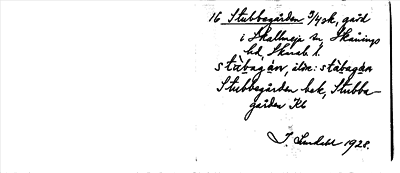 16 Stubbagården 3/4 sk, gård
i Skallmeja sn Skånings
hd, Skarab. l.
stùbagán, äldre: stùbagán
Stubbegården bek, Stubba-
gården Kb
J. Lundahl 1928.